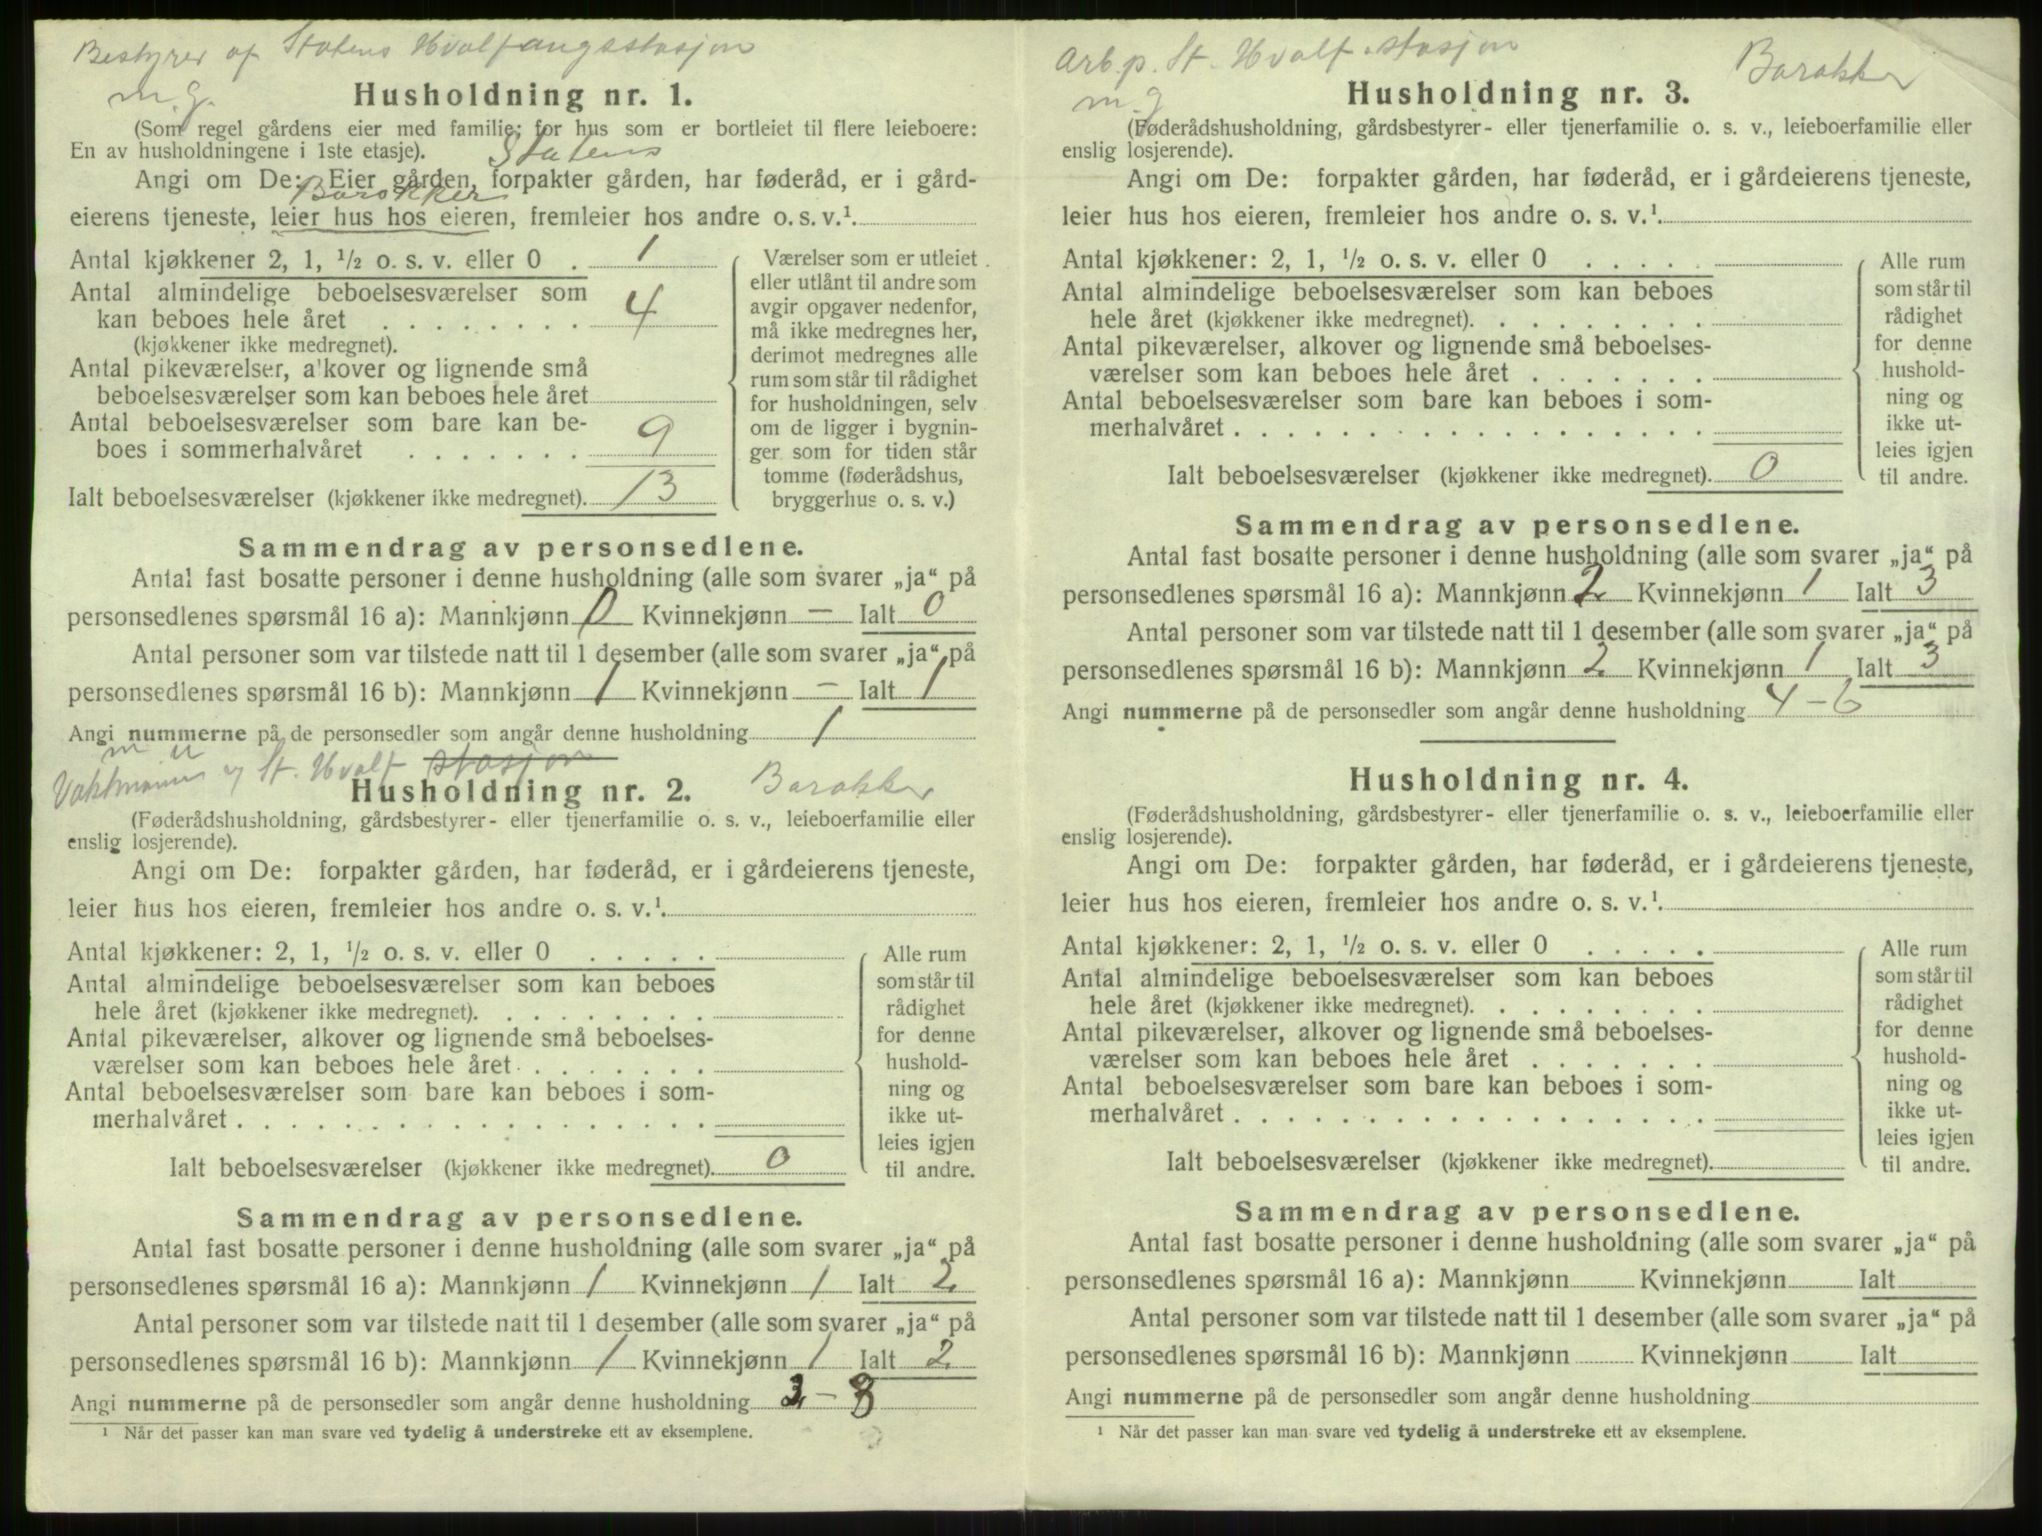 Bestyrer af Statens Hvalfangststasjon
m.g.
Husholdning nr. 1.
(Som regel gårdens eier med familie; for hus som er bortleiet til flere leieboere:
En av husholdningene i 1ste etasje).
Statens
Angi om De: Eier gården, forpakter gården, har føderåd, er i gård-
Barakker
eierens tjeneste, leier hus hos eieren, fremleier hos andre o. s. v.¹.
Antal kjøkkener 2, 1, ½ o. s. v. eller 0 . 1
Antal almindelige beboelsesværelser som
kan beboes hele året . . . . . . . . 4
(kjøkkener ikke medregnet).
Antal pikeværelser, a'kover og lignende små
beboelsesværelser som kan beboes hele året
Antal beboelsesværelser som bare kan be-
boes i sommerhalvåret . . . . . . . 9
Ialt beboelsesværelser (kjøkkener ikke medregnet). 13
Værelser som er utleiet
eller utlånt til andre som
avgir opgaver nedenfor,
må ikke medregnes her,
derimot medregnes alle
rum som står til rådighet
for husholdningen, selv
om de ligger i bygnin-
ger som for tiden står
tomme (føderådshus,
bryggerhus o. s. v.)
Sammendrag av personsedlene.
Antal fast bosatte personer i denne husholdning (alle som svarer „ja“ på
personsedlenes spørsmål 16 a): Mannkjønn 0 Kvinnekjønn – Ialt 0
Antal personer som var tilstede natt til 1 desember (alle som svarer „ja“ på
personsedlenes spørsmål 16 b): Mannkjønn 1 Kvinnekjønn – Ialt 1
Angi nummerne på de personsedler som angår denne husholdning 1
m u
Vaktmann St. Hvalf stasjon
Husholdning nr. 2. Barakker
(Føderådshusholdning, gårdsbestyrer- eller tjenerfamilie o. s. v., leieboerfamilie eller
enslig losjerende).
Angi om De: forpakter gården, har føderåd, er i gårdeierens tjeneste,
leier hus hos eieren, fremleier hos andre o. s. v.¹.
Antal kjøkkener: 2, 1, ½ o. s. v. eller 0 . . . . .
Antal almindelige beboelsesværelser som kan beboes
hele året (kjøkkener ikke medregnet). . . . . . . . .
Antal pikeværelser, alkover og lignende små beboelses-
værelser som kan beboes hele året . . . . . . .
Antal beboelsesværelser som bare kan beboes i som-
merhalvåret . . . . . . . . . . . . . . . . . .
Ialt beboelsesværelser (kjøkkener ikke medregnet). 0
Alle rum
som står til
rådighet
for denne
hushold-
ning og
ikke ut-
leies igjen
til andre.
Sammendrag av personsedlene.
Antal fast bosatte personer i denne husholdning (alle som svarer „ja“ på
personsedlenes spørsmål 16 a): Mannkjønn 1 Kvinnekjønn 1 Ialt 2
Antal personer som var tilstede natt til 1 desember (alle som svarer „ja“ på
personsedlenes spørsmål 16 b): Mannkjønn 1 Kvinnekjønn 1 Ialt 2
Angi nummerne på de personsedler som angår denne husholdning 2 – 3
¹ Når det passer kan man svare ved tydelig å understreke ett av eksemplene.
Arb. p. St. Hvalf.stasjon Barakker
m.g
Husholdning nr. 3.
(Føderådshusholdning, gårdsbestyrer- eller tjenerfamilie o. s. v., leieboerfamilie eller
enslig losjerende).
Angi om De: forpakter gården, har føderåd, er i gårdeierens tjeneste,
leier hus hos eieren, fremleier hos andre o. s. v.¹.
Antal kjøkkener: 2, 1, ½ o. s. v. eller 0 . . . . .
Antal almindelige beboelsesværelser som kan beboes
hele året (kjøkkener ikke medregnet). . . . . . . . .
Antal pikeværelser, alkover og lignende små beboelses-
værelser som kan beboes hele året . . . . . . .
Antal beboelsesværelser som bare kan beboes i som-
merhalvåret . . . . . . . . . . . . . . . . . .
Ialt beboelsesværelser (kjøkkener ikke medregnet). 0
Alle rum
som står til
rådighet
for denne
hushold-
ning og
ikke ut-
leies igjen
til andre.
Sammendrag av personsedlene.
Antal fast bosatte personer i denne husholdning (alle som svarer „ja“ på
personsedlenes spørsmål 16 a): Mannkjønn 2 Kvinnekjønn 1 Ialt 3
Antal personer som var tilstede natt til 1 desember (alle som svarer „ja“ på
personsedlenes spørsmål 16 b): Mannkjønn 2 Kvinnekjønn 1 Ialt 3
Angi nummerne på de personsedler som angår denne husholdning 4 – 6
Husholdning nr. 4.
(Føderådshusholdning, gårdsbestyrer- eller tjenerfamilie o. s. v., leieboerfamilie eller
enslig losjerende).
Angi om De: forpakter gården, har føderåd, er i gårdeierens tjeneste,
leier hus hos eieren, fremleier hos andre o. s. v.¹.
Antal kjøkkener: 2, 1, ½ o. s. v. eller 0 . . . . .
Antal almindelige beboelsesværelser som kan beboes
hele året (kjøkkener ikke medregnet). . . . . . . . .
Antal pikeværelser, alkover og lignende små beboelses-
værelser som kan beboes hele året . . . . . . .
Antal beboelsesværelser som bare kan beboes i som-
merhalvåret . . . . . . . . . . . . . . . . . .
Ialt beboelsesværelser (kjøkkener ikke medregnet).
Alle rum
som står til
rådighet
for denne
hushold-
ning og
ikke ut-
leies igjen
til andre.
Sammendrag av personsedlene.
Antal fast bosatte personer i denne husholdning (alle som svarer „ja“ på
personsedlenes spørsmål 16 a): Mannkjønn Kvinnekjønn Ialt
Antal personer som var tilstede natt til 1 desember (alle som svarer „ja“ på
personsedlenes spørsmål 16 b): Mannkjønn Kvinnekjønn Ialt
Angi nummerne på de personsedler som angår denne husholdning
¹ Når det passer kan man svare ved tydelig å understreke ett av eksemplene.